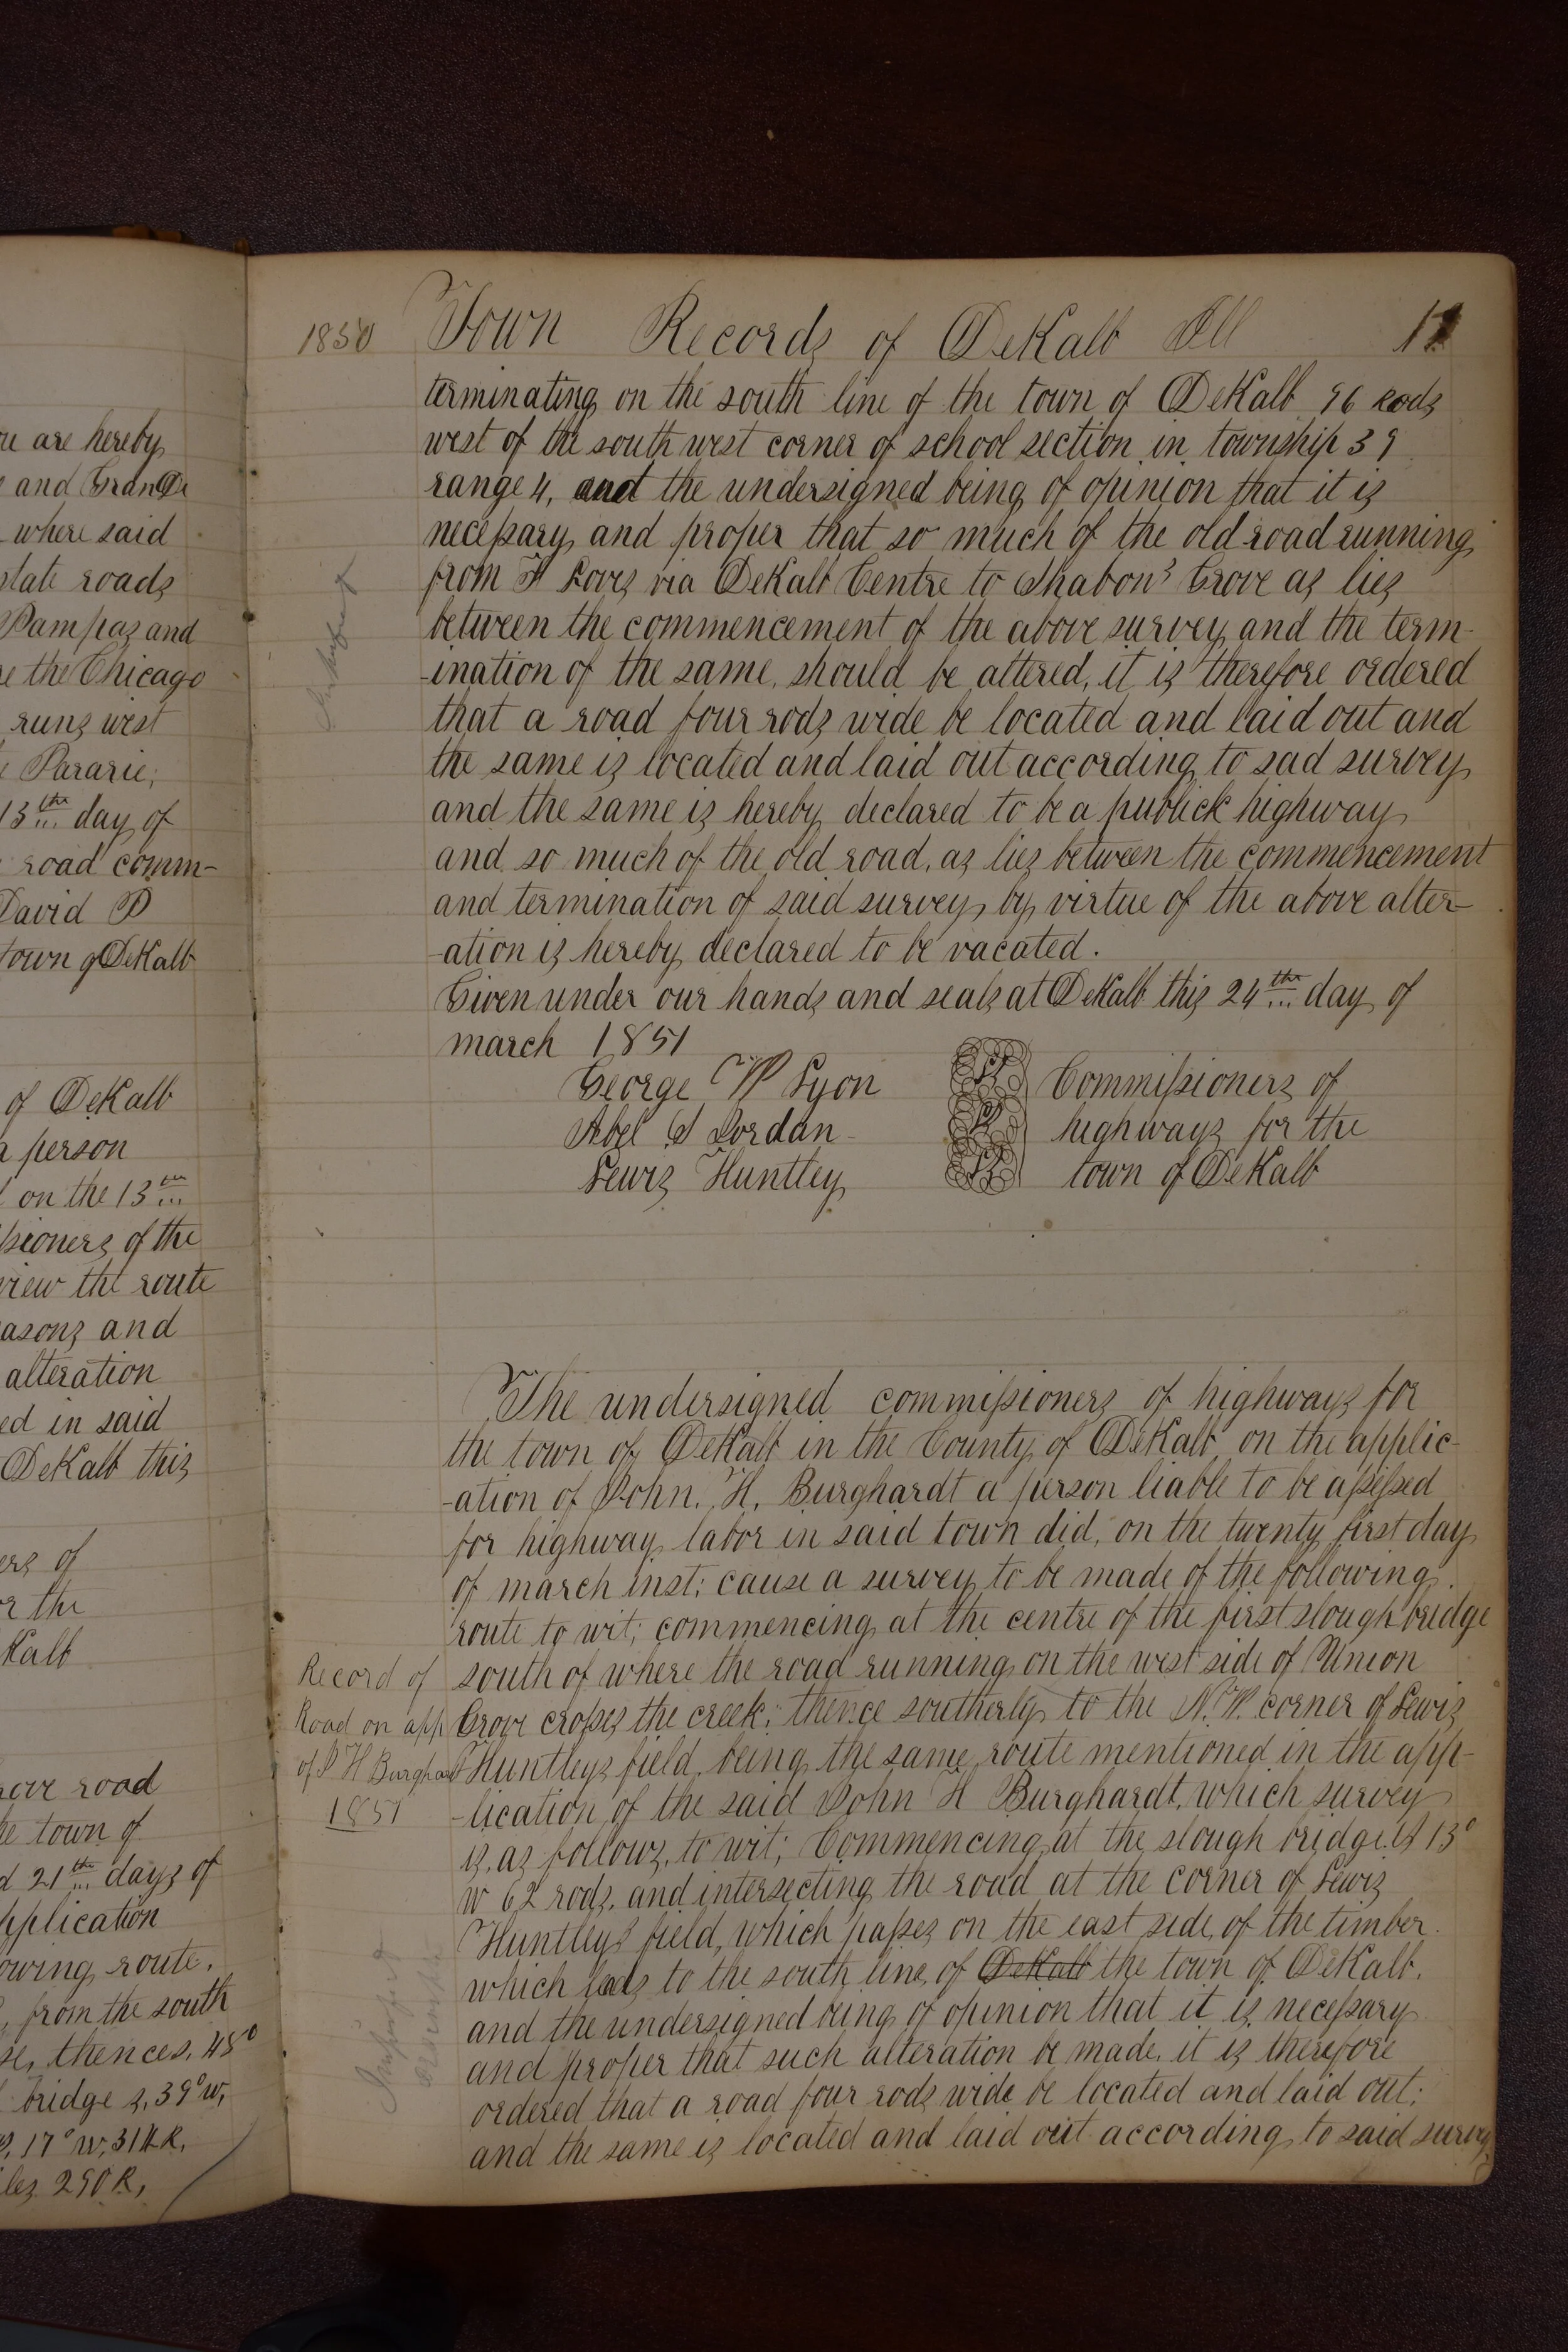 ou are hereby
and Grand De
where said
state roads
Pampas and
re the Chicago
runs west
Pararie;
13th day of
road comm-
David P
town of DeKalb
of DeKalb
a person
on the 13th
ssioners of the
view the route
easons and
alteration
ed in said
DeKalb this
ers of
or the
Kalb
rove road
he town of
d 21th days of
application
owing route.
from the south
se, thence s. 45°
bridge s. 39° w,
17° w, 314 R,
les 290 R,
1850 Town Records of DeKalb Ill
terminating on the south line of the town of DeKalb 96 Rods
west of the south west corner of school section in township 39
range 4, and the undersigned being of opinion that it is
necessary and proper that so much of the old road running
from H Loves via DeKalb Centre to Shabons Grove as lies
between the commencement of the above survey and the term-
-ination of the same, should be altered, it is therefore ordered
that a road four rods wide be located and laid out and
the same is located and laid out according to sad survey
and the same is hereby declared to be a publick highway
and so much of the old road, as lies between the commencement
and termination of said survey by virtue of the above alter-
-ation is hereby declared to be vacated.
Given under our hands and seals at DeKalb this 24th day of
march 1851
George W Lyon Commissioners of
Abel S Jordan highways for the
Lewis Huntley town of DeKalb
The undersigned commissioners of highways for
the town of DeKalb in the County of DeKalb on the applic-
-ation of John. H. Burghardt a person liable to be assessed
for highway labor in said town did, on the twenty first day
of march inst; cause a survey to be made of the following
route to wit; commencing at the centre of the first slough bridge
south of where the road running on the west side of Union
Grove crosses the creek; thence southerly to the N.W. corner of Lewis
Huntleys field, being the same route mentioned in the app-
-lication of the said John H Burghardt, which survey
is, as follows, to wit; Commencing at the slough bridge. S 13°
w 62 rods, and intersecting the road at the corner of Lewis
Huntleys field, which passes on the east side of the timber
which leads to the south line of DeKalb the town of DeKalb.
and the undersigned being of opinion that it is necessary
and proper that such alteration be made, it is therefore
ordered that a road four rods wide be located and laid out;
and the same is located and laid out according to said survey
Record of
Road on app
of J H Burghardt
1851